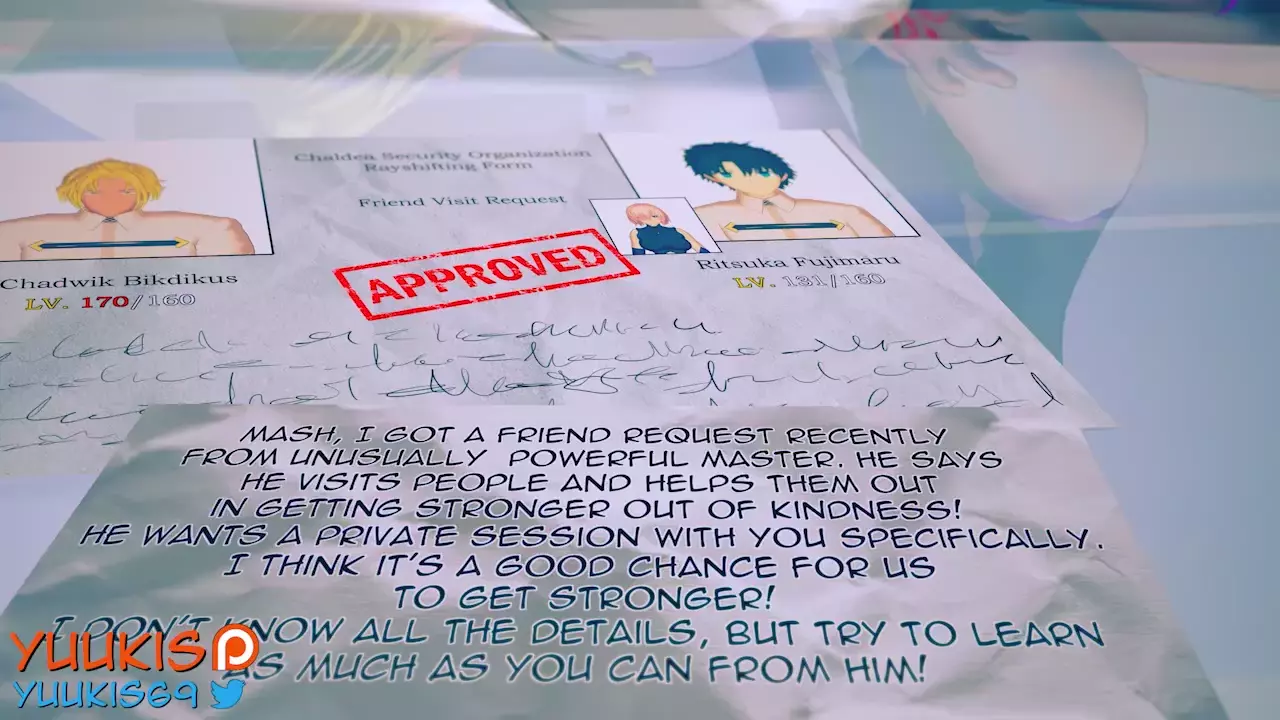 Chaldea Security Organization
Rayshifting Form
Friend Visit Request
APPROVED
Chadwik Bikdikus
LV. 170/160
Ritsuka Fujimaru
LV. 131/160
MASH, I GOT A FRIEND REQUEST RECENTLY
FROM UNUSUALLY POWERFUL MASTER. HE SAYS
HE VISITS PEOPLE AND HELPS THEM OUT
IN GETTING STRONGER OUT OF KINDNESS!
HE WANTS A PRIVATE SESSION WITH YOU SPECIFICALLY.
I THINK IT'S A GOOD CHANCE FOR US
TO GET STRONGER!
I DON'T KNOW ALL THE DETAILS, BUT TRY TO LEARN
AS MUCH AS YOU CAN FROM HIM!
YUUKIS
YUUKIS69